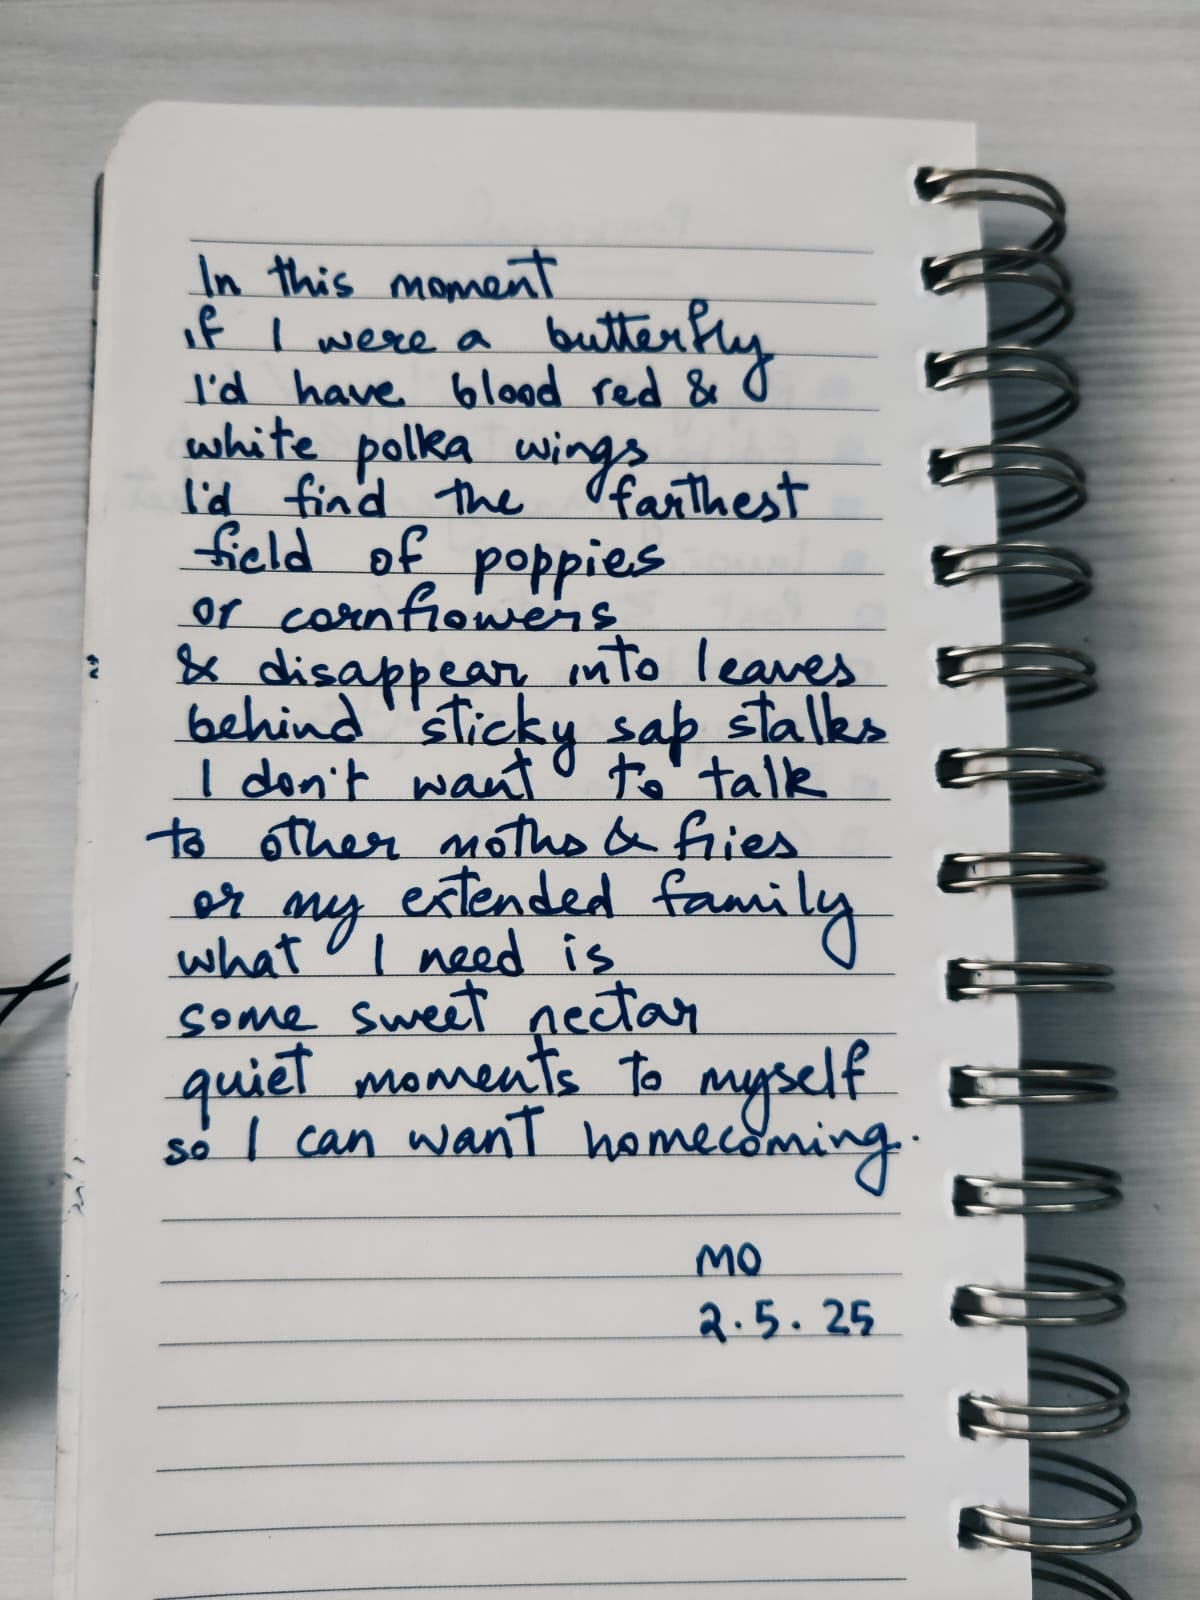 In this moment
if I were a butterfly
I'd have blood red &
white polka wings
I'd find the farthest
field of poppies
or cornflowers
& disappear into leaves
behind sticky sap stalks
I don't want to talk
to other moths & flies
or my extended family
what I need is
some sweet nectar
quiet moments to myself
so I can want homecoming.
MO
2.5.25